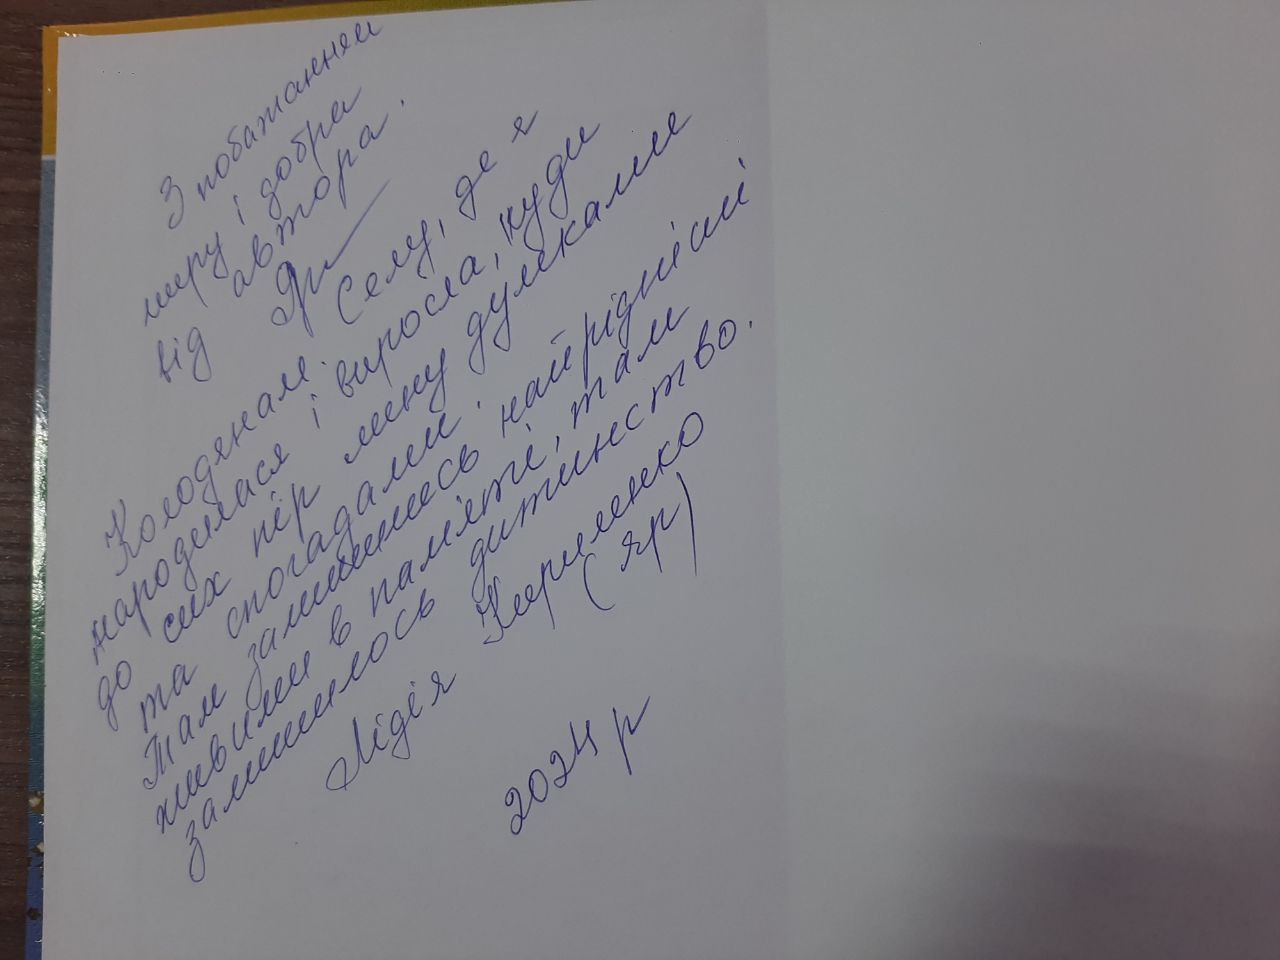 З побажанням
миру і добра
від автора.
Колодянам. Селу, де я
народилася і виросла, куди
до сих пір лину думками
та спогадами.
Там залишились найрідніші
живими в пам'яті, там
залишилось дитинство.
Лідія Кириленко
(Яр)
2024 р